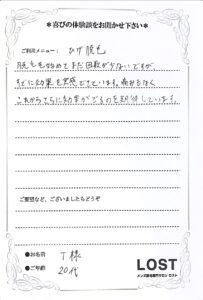 ＊喜びの体験談をお聞かせ下さい＊
ご利用メニュー： ひげ脱毛
脱毛を始めてまだ回数が少ないですが、
すでに効果を実感できています。痛みもなく、
これからさらに効果がでるのを期待しています。
ご要望など、ございましたらどうぞ
●お名前 T様
●ご年齢 20代
LOST
メンズ脱毛専門サロン ロスト